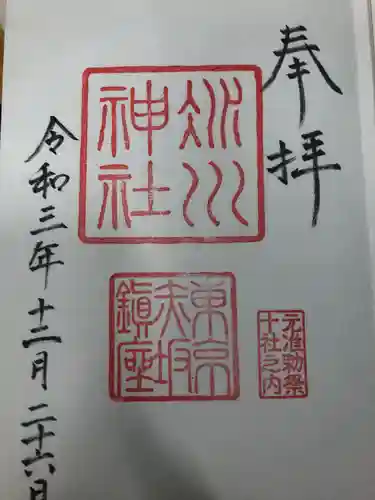 奉拝
氷川
神社
東京
赤坂
鎮座
元准勅祭
十社之内
令和三年十二月二十六日